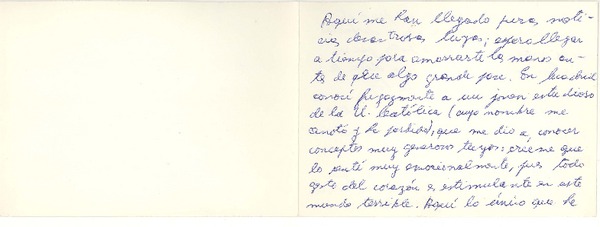 Aquí me han llegado peras noti-
cias desastrosas tuyas; espero llegar
a tiempo para amarrarte las manos an-
tes de que algo grande pase. En
conocí fugazmente a un joven estudioso
de la U. Católica (cuyo nombre me
anotó y he perdido), que me dio a conocer
conceptos muy generosos tuyos: créeme que
lo sentí muy emocionalmente, pues todo
gesto del corazón es estimulante en este
mundo terrible. Aquí lo único que he